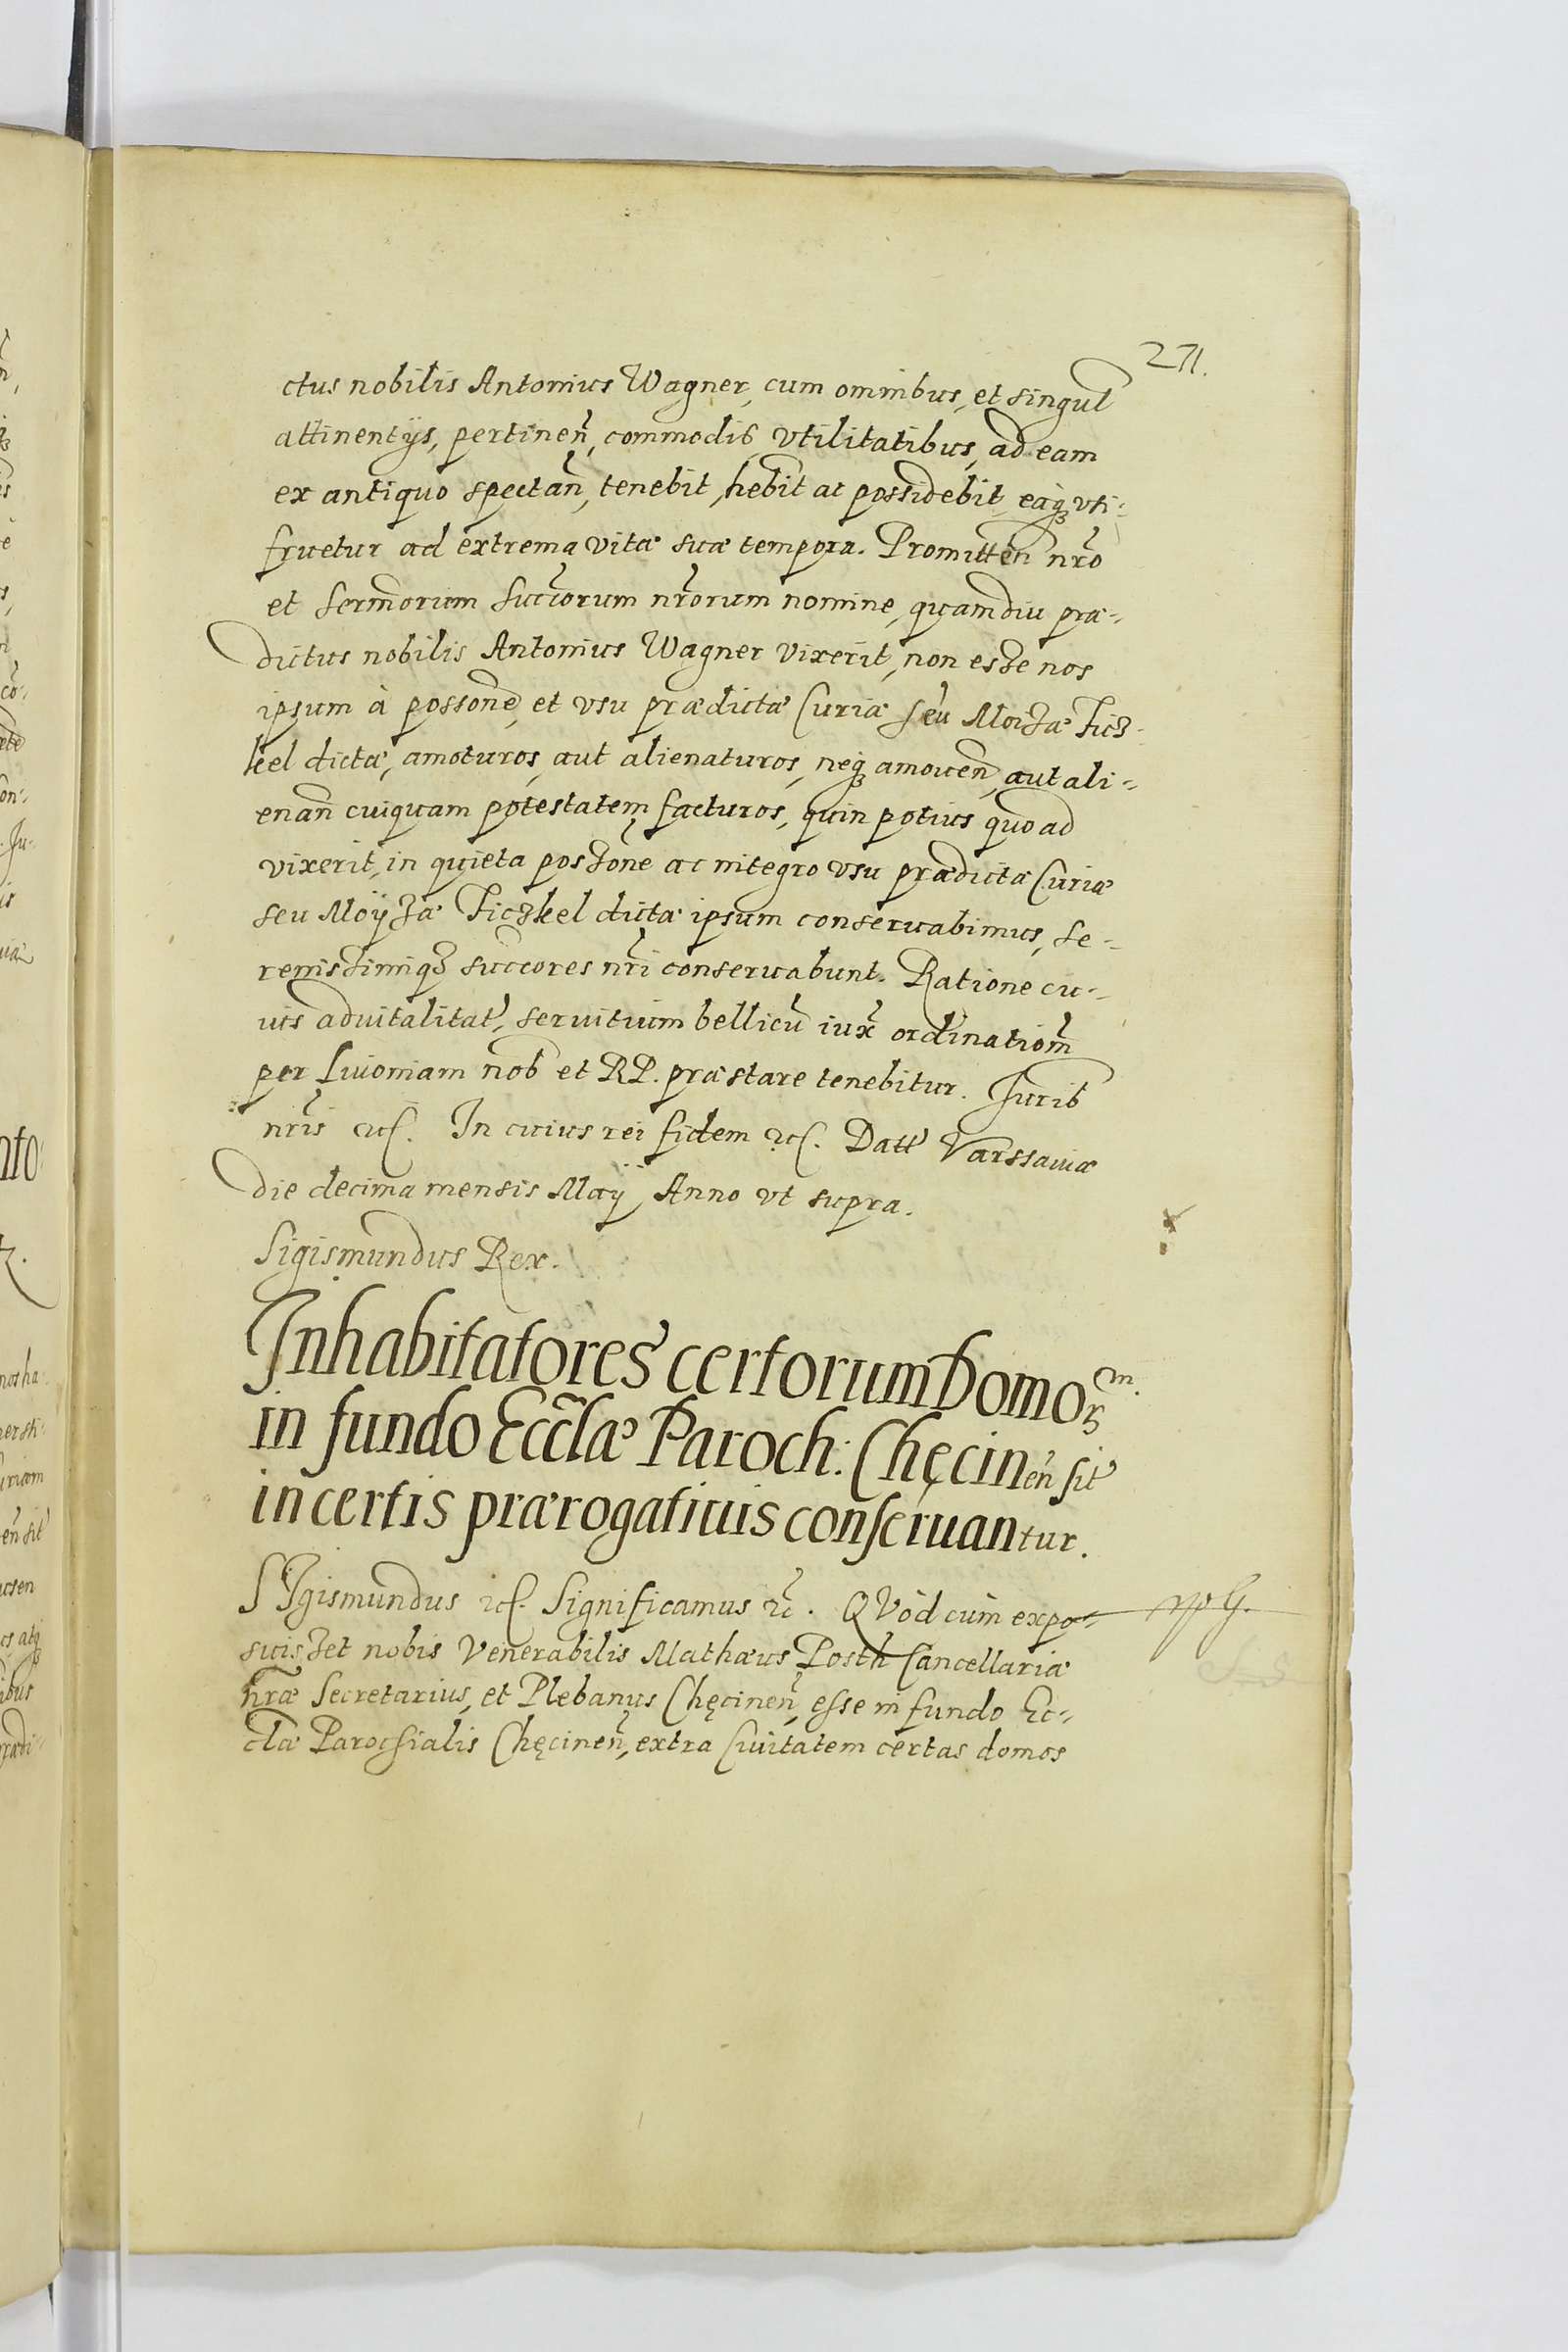 271.
ctus nobilis Antonius Wagner, cum omnibus, et singul
attinentijs, pertinen̄, commodis, vtilitatibus, ad eam
ex antiquo spectan̄, tenebit, hēbit ac possidebit, eaq́ʒ vti-
fruetur ad extrema vitæ suæ tempora. Promitten̄ nr̄o
et serm̄orum succ̄orum nr̄orum nomine, quamdiu præ-
dictus nobilis Antonius Wagner vixerit, non esse nos
ipsum à possonē, et vsu prædictæ Curiæ seu Moizæ Ficz-
kel dictæ, amoturos, aut alienaturos, neqʒ amouen̄, aut ali-
enan̄ cuiquam potestatem facturos, quin potius quoad
vixerit, in quieta possonē ac integro vsu prædictæ Curiæ
seu Moÿzæ Ficzkel dictæ ipsum conseruabimus, se-
renissimiqʒ succores nr̄i conseruabunt. Ratione cu-
ius aduitalitat̄, seruitium bellicū iux̄ ordinatiom̄
per Liuoniam nob et RP. præstare tenebitur. Jurib
nr̄is etc. In cuius rei fidem etc. Datt̄ Varssauiæ
die decima mensis Maÿ, Anno vt supra.
Sigismundus Rex.
Inhabitatores certorum Domorꝝ
m.
in fundo Eccl̄æ Paroch: Chęcinen̄ sit̄
in certis prærogatiuis conseruantur.
SIgismundus etc. Significamus etc. QVod cum expo-
suisset nobis Venerabilis Mathæus Posth Cancellariæ
nr̄æ Secretarius, et Plebanus Chęcinen̄, esse in fundo Ec-
cl̄æ Parochialis Chęcinen̄, extra Ciuitatem certas domos